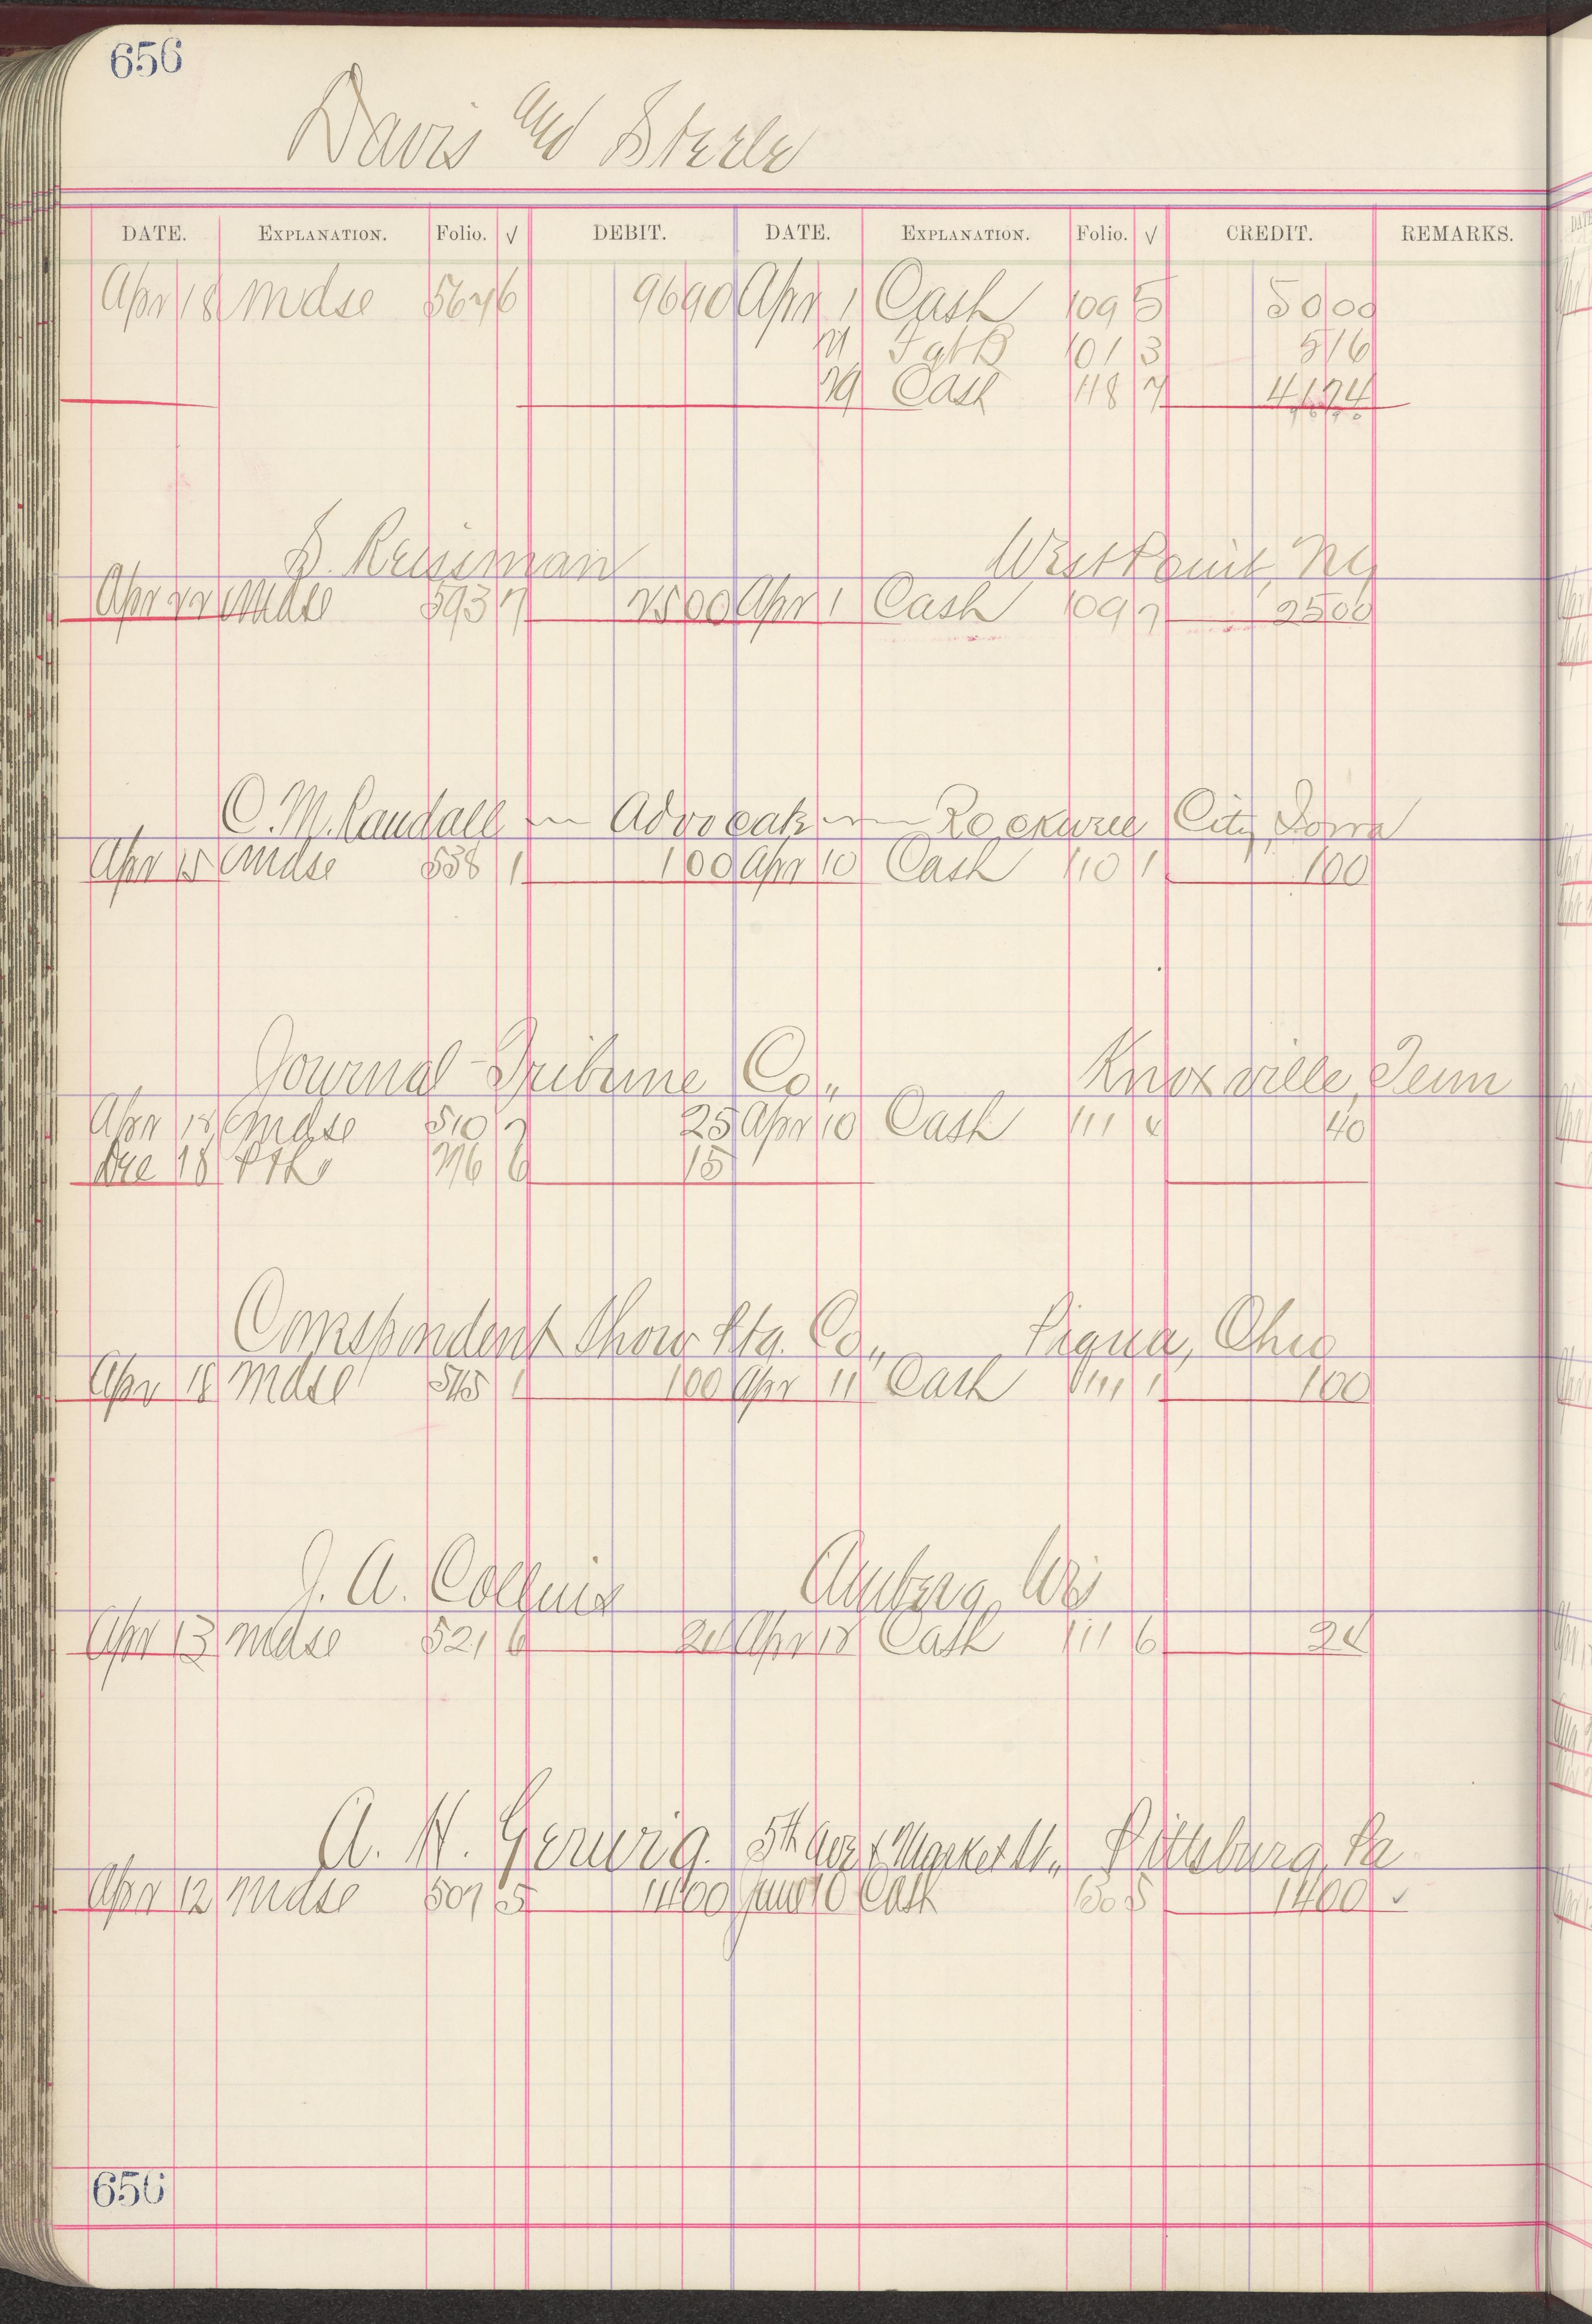 656
Davis and Steele
DATE. EXPLANATION. Folio. √ DEBIT. DATE. EXPLANATION. Folio. √ CREDIT. REMARKS.
Apr 18 Mdse 564 6 96 90 Apr 1 Cash 109 5 50 00
101 3 5 16
29 Cash 118 7 41 74
West Point, Ny
Apr 22 Mdse 593 7 25 00 Apr 1 Cash 109 7 25 00
C. M. Randall — Advocate — Rockwell City, Iowa
Apr 15 Mdse 538 1 1 00 Apr 10 Cash 110 1 1 00
Journal-Tribune Co., Knoxville, Tenn
Apr 12 Mdse 510 2 25 Apr 10 Cash 111 4 40
Dec 18 6 15
Correspondent Show Ptg. Co., Piqua, Ohio
Apr 18 Mdse 545 1 1 00 Apr 11 Cash 111 1 1 00
J. A. Collins Amberg, Wis
Apr 13 Mdse 521 6 24 Apr 12 Cash 111 6 24
A. H. Gerwig. 5th Ave & Market St., Pittsburg, Pa
Apr 12 Mdse 507 5 14 00 June 10 Cash 130 5 14 00 ✓
656